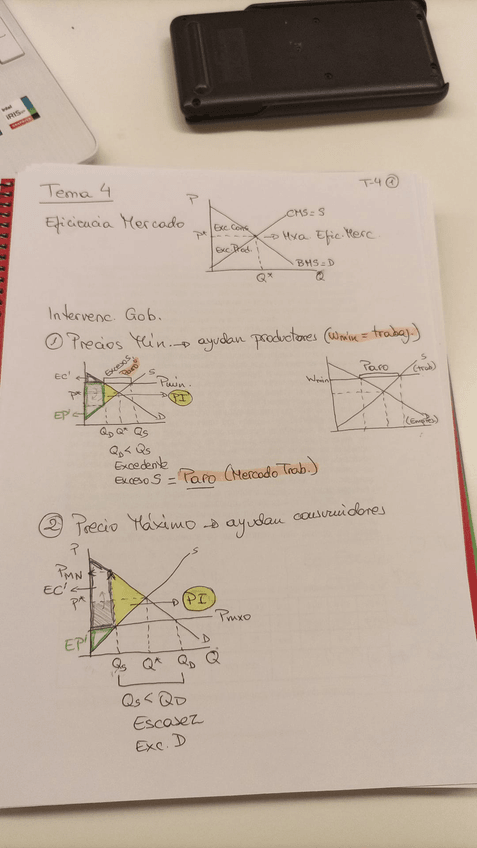 intel
IRIS
T-4 ①
Tema 4
Eficicacia Mercado
P
CMS=S
Exc. Cons
P*
→ Mxa Efic. Merc
Exc. Prod.
BMS=D
Q*
Q
Intervenc. Gob.
① Precios Mín. → ayudan productores (Wmin = trabaj.)
Exceso S
Paro
EC'
S
Pmin.
P*
PI
EP'
D
QD Q* QS
QD < QS
Excedente
Exceso S = Paro (Mercado Trab.)
Paro
S
(trab)
Wmin
D
(Empres)
② Precio Máximo → ayudan consumidores
P
S
PMN
EC'
P*
PI
Pmxo
EP'
D
QS Q* QD Q
QS < QD
Escasez
Exc. D